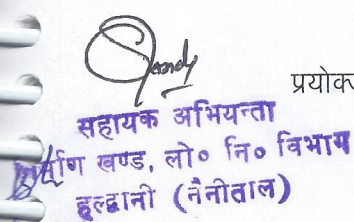 प्रयोक
सहायक अभियन्ता
र्माण खण्ड, लो० नि० विभाग
हल्द्वानी (नैनीताल)